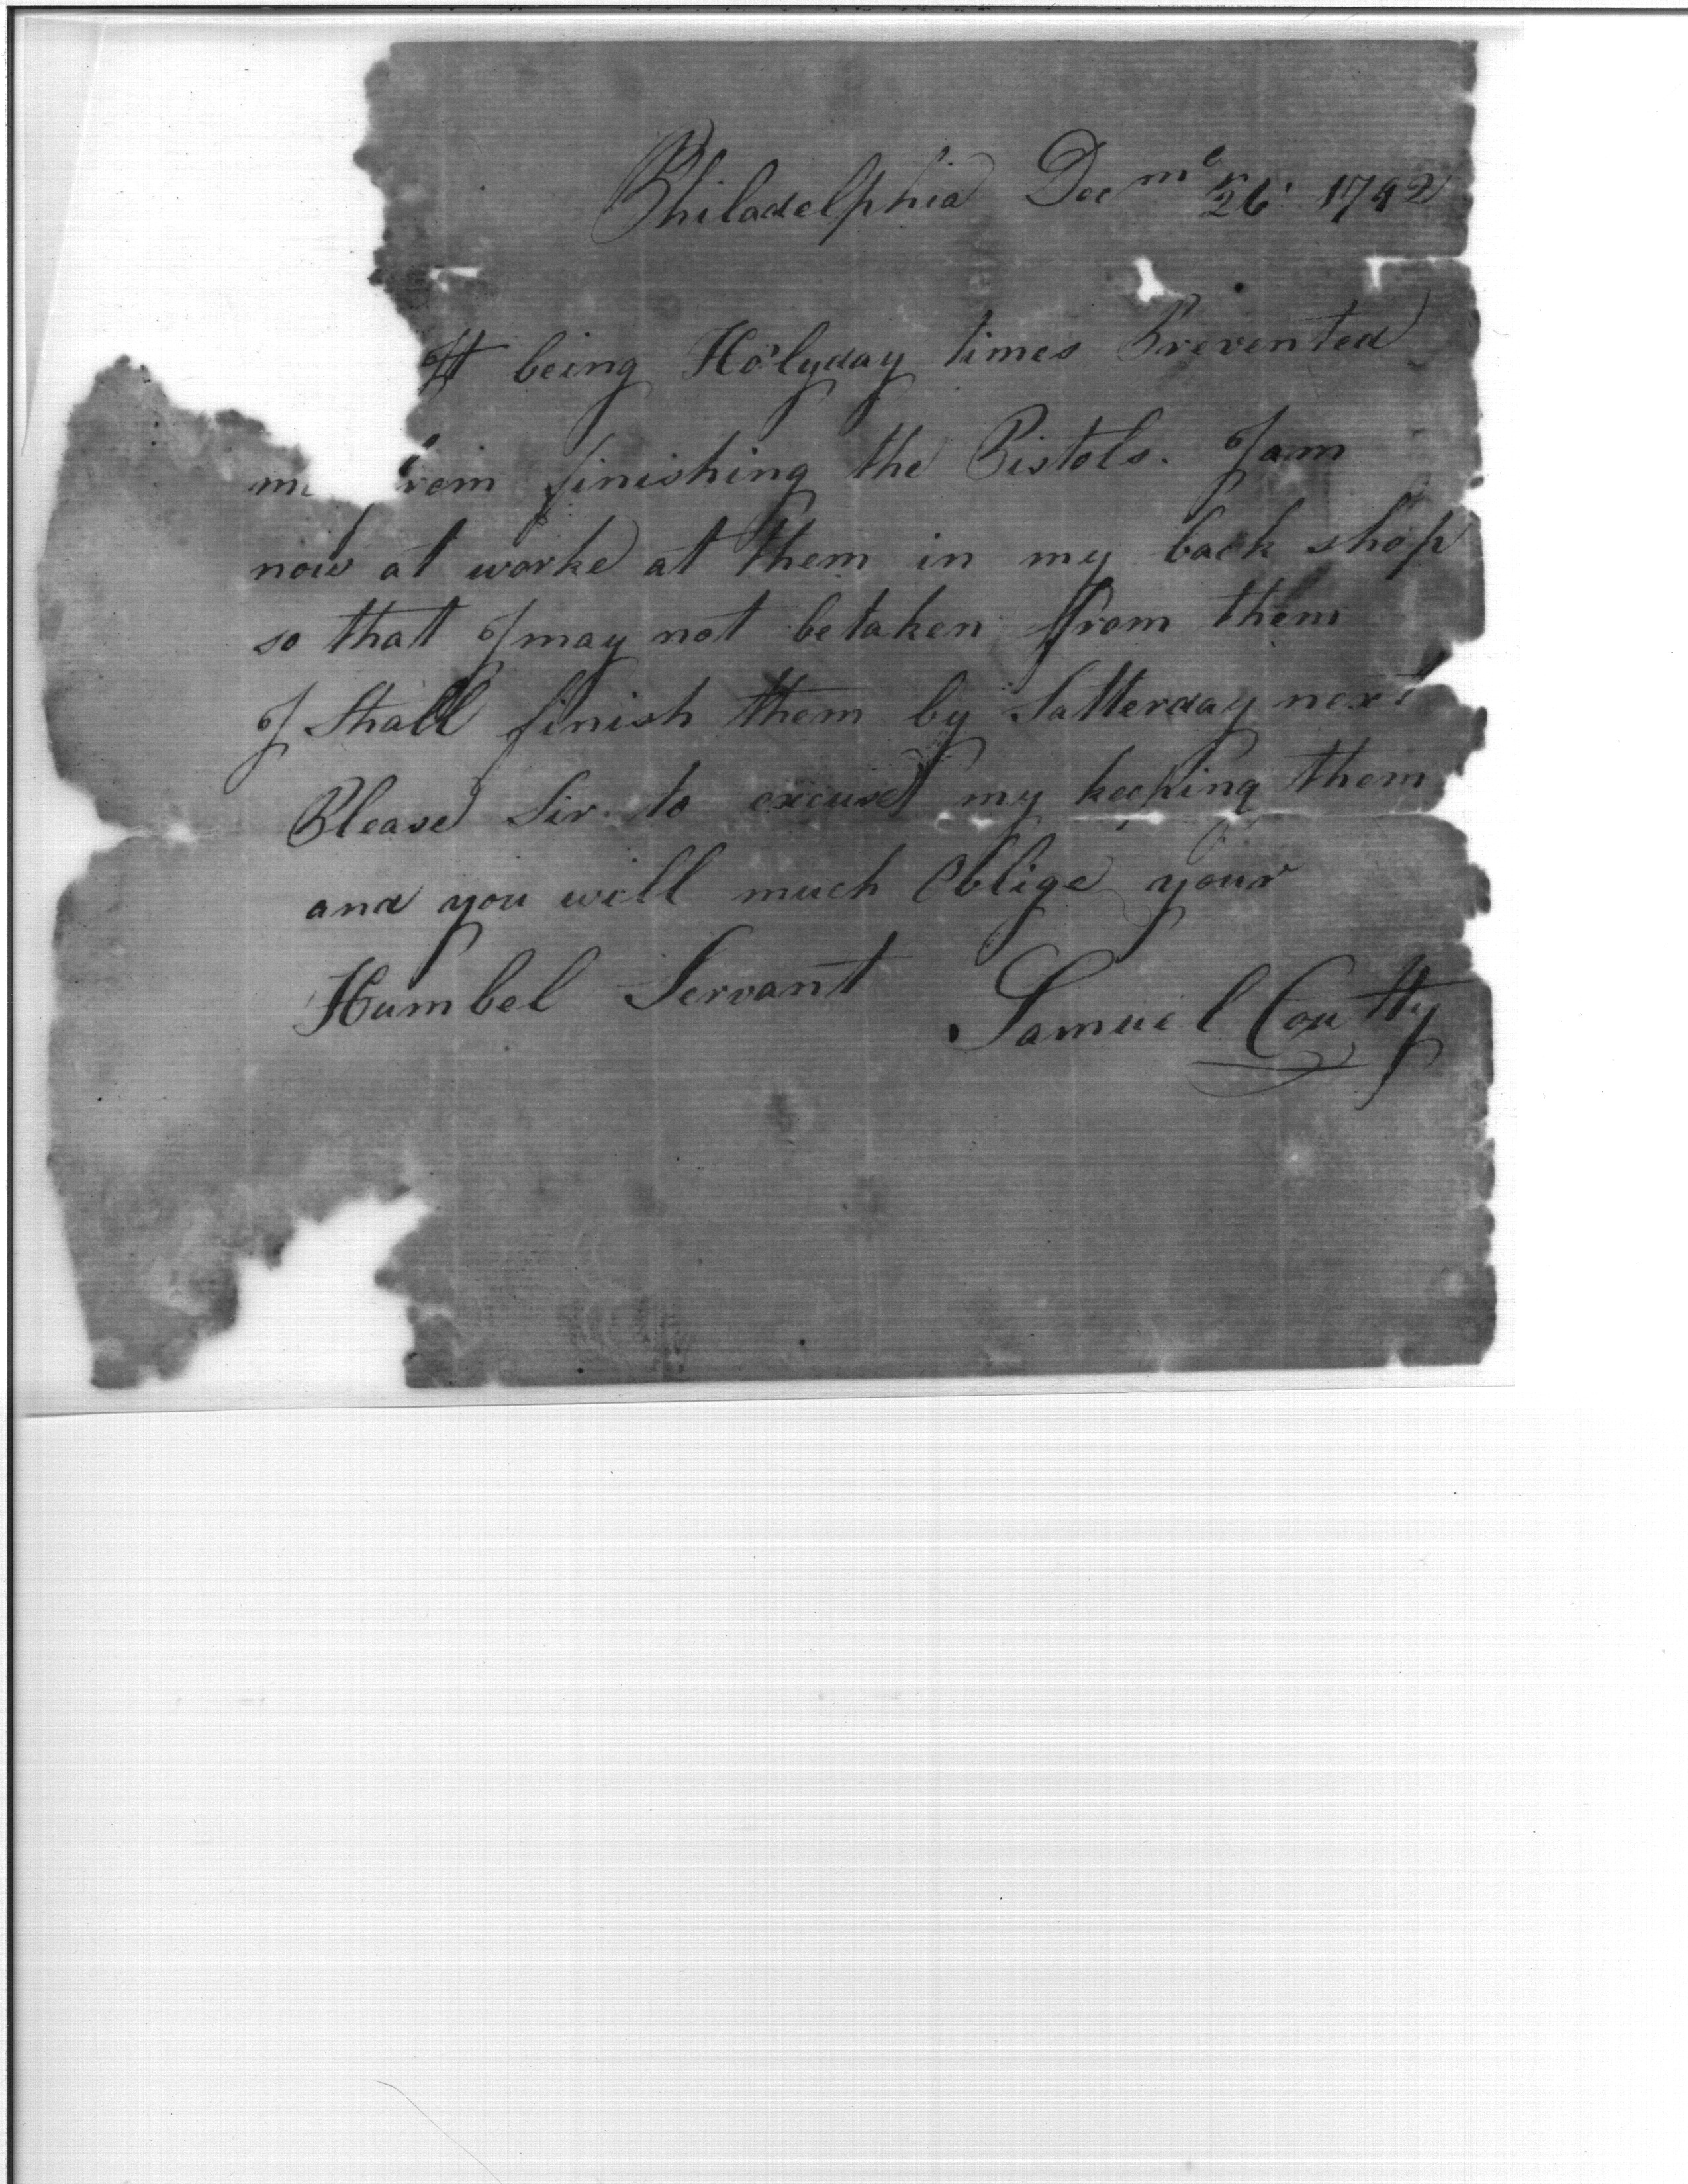 Philadelphia Decmer 26: 1742
It being Holyday times Prevented
me from finishing the Pistols. I am
now at worke at them in my back shop
so that I may not be taken from them
I Shall finish them by Satterday next
Please Sir. to excuse my keeping them
and you will much Oblige your
Humbel Servant Samuel Coutty